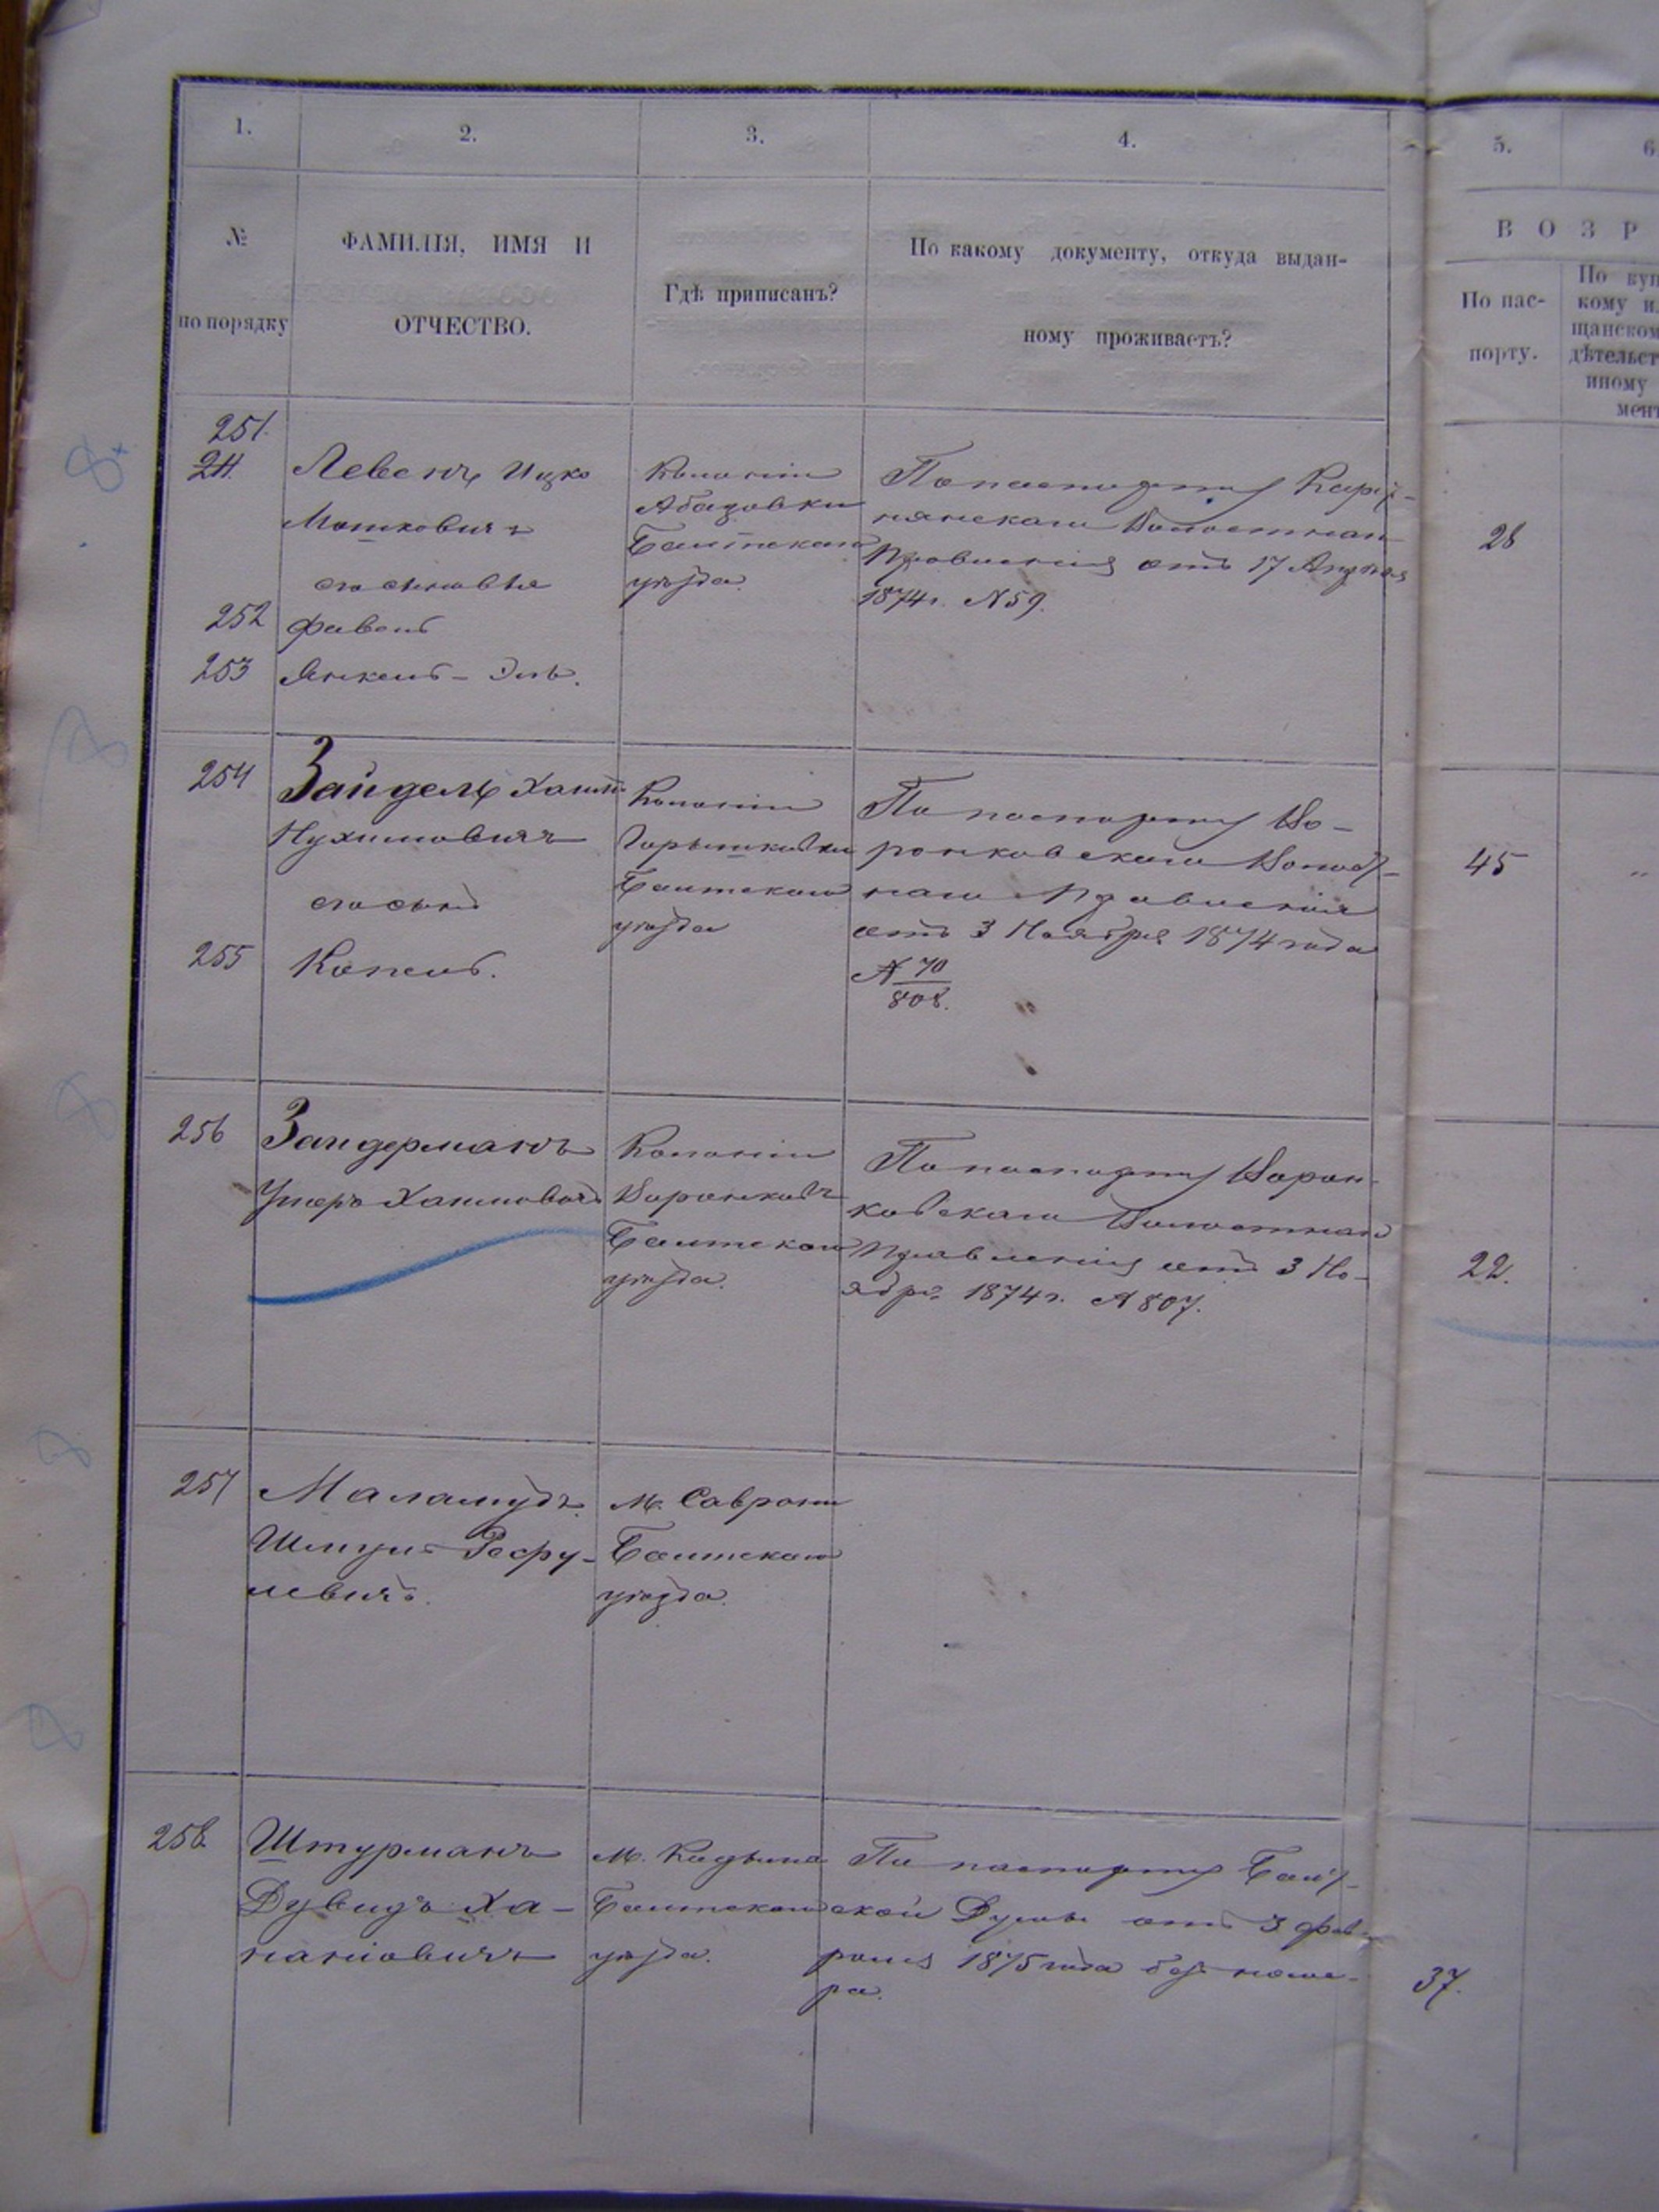 1.
2.
3.
4.
5.
6
№
по порядку
ФАМИЛІЯ, ИМЯ И
ОТЧЕСТВО.
Гдѣ приписанъ?
По какому документу, откуда выдан-
ному проживаетъ?
ВОЗР
По пас-
порту.
По куп
кому и
щанском
дѣтельст
иному
мент
251.
Ицко
Мошковичъ
его сыновья
252
Файвель
253
Янкель-Эль.
Колоніи
Абазовки
Балтскаго
уѣзда.
По паспорту
Волостнаго
Правленія отъ 17 Апрѣля
1874 г. № 59.
28
254
Зайдель Хаимъ
Нухимовичъ
его сынъ
255
Копель.
Колоніи
Балтскаго
уѣзда
По паспорту Во-
ронковскаго Волост-
наго Правленія
отъ 3 Ноября 1874 года
№ 70
808.
45
"
256
Зайдерманъ
Хаимовичъ
Колоніи
Воронкова
Балтскаго
уѣзда.
По паспорту Ворон-
ковскаго Волостнаго
Правленія отъ 3 Но-
ября 1874 г. № 807.
22.
257
Маламудъ
Шмуль
левичъ.
М. Саврани
Балтскаго
уѣзда.
258.
Штурманъ
Дувидъ Ха-
наніовичъ
М. Кодыма
Балтскаго
уѣзда.
По паспорту Балт-
ской Думы отъ 3 Фев-
раля 1875 года безъ номе-
ра.
37.